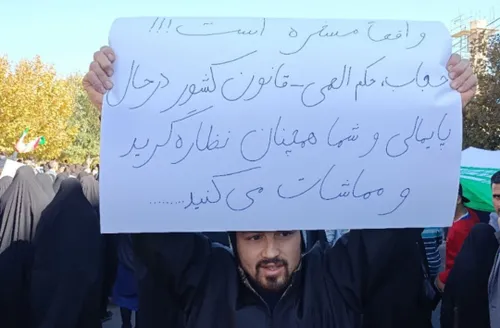 واقعاً مسخره است!!!
حجاب، حکم الهی - قانون کشور درحال
پایمالی و شما همچنان نظاره گرید
و مماشات می کنید.........